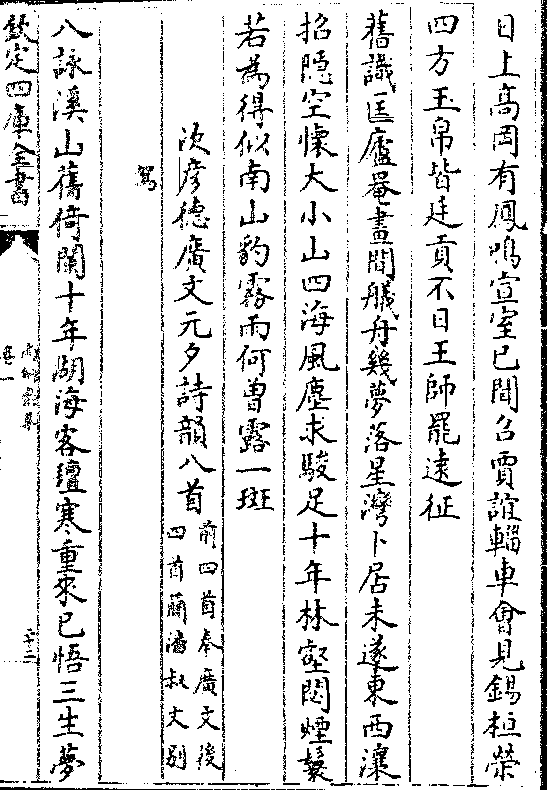 日上高岡有鳳鳴宣室已聞召賈誼輜車會見錫桓榮
四方玉帛皆廷貢不日王師罷遠征
舊識匡廬罨畫間艤舟幾夢落星灣卜居未遂東西瀼
招隱空懷大小山四海風塵求駿足十年林壑閟煙鬟
若為得似南山豹霧雨何曽露一斑
次彦德廣文元夕詩韻八首前四首奉廣文後四首簡潘叔文别
駕
八詠溪山舊倚闌十年湖海客氊寒重來已悟三生夢
欽定四庫全書
卷一